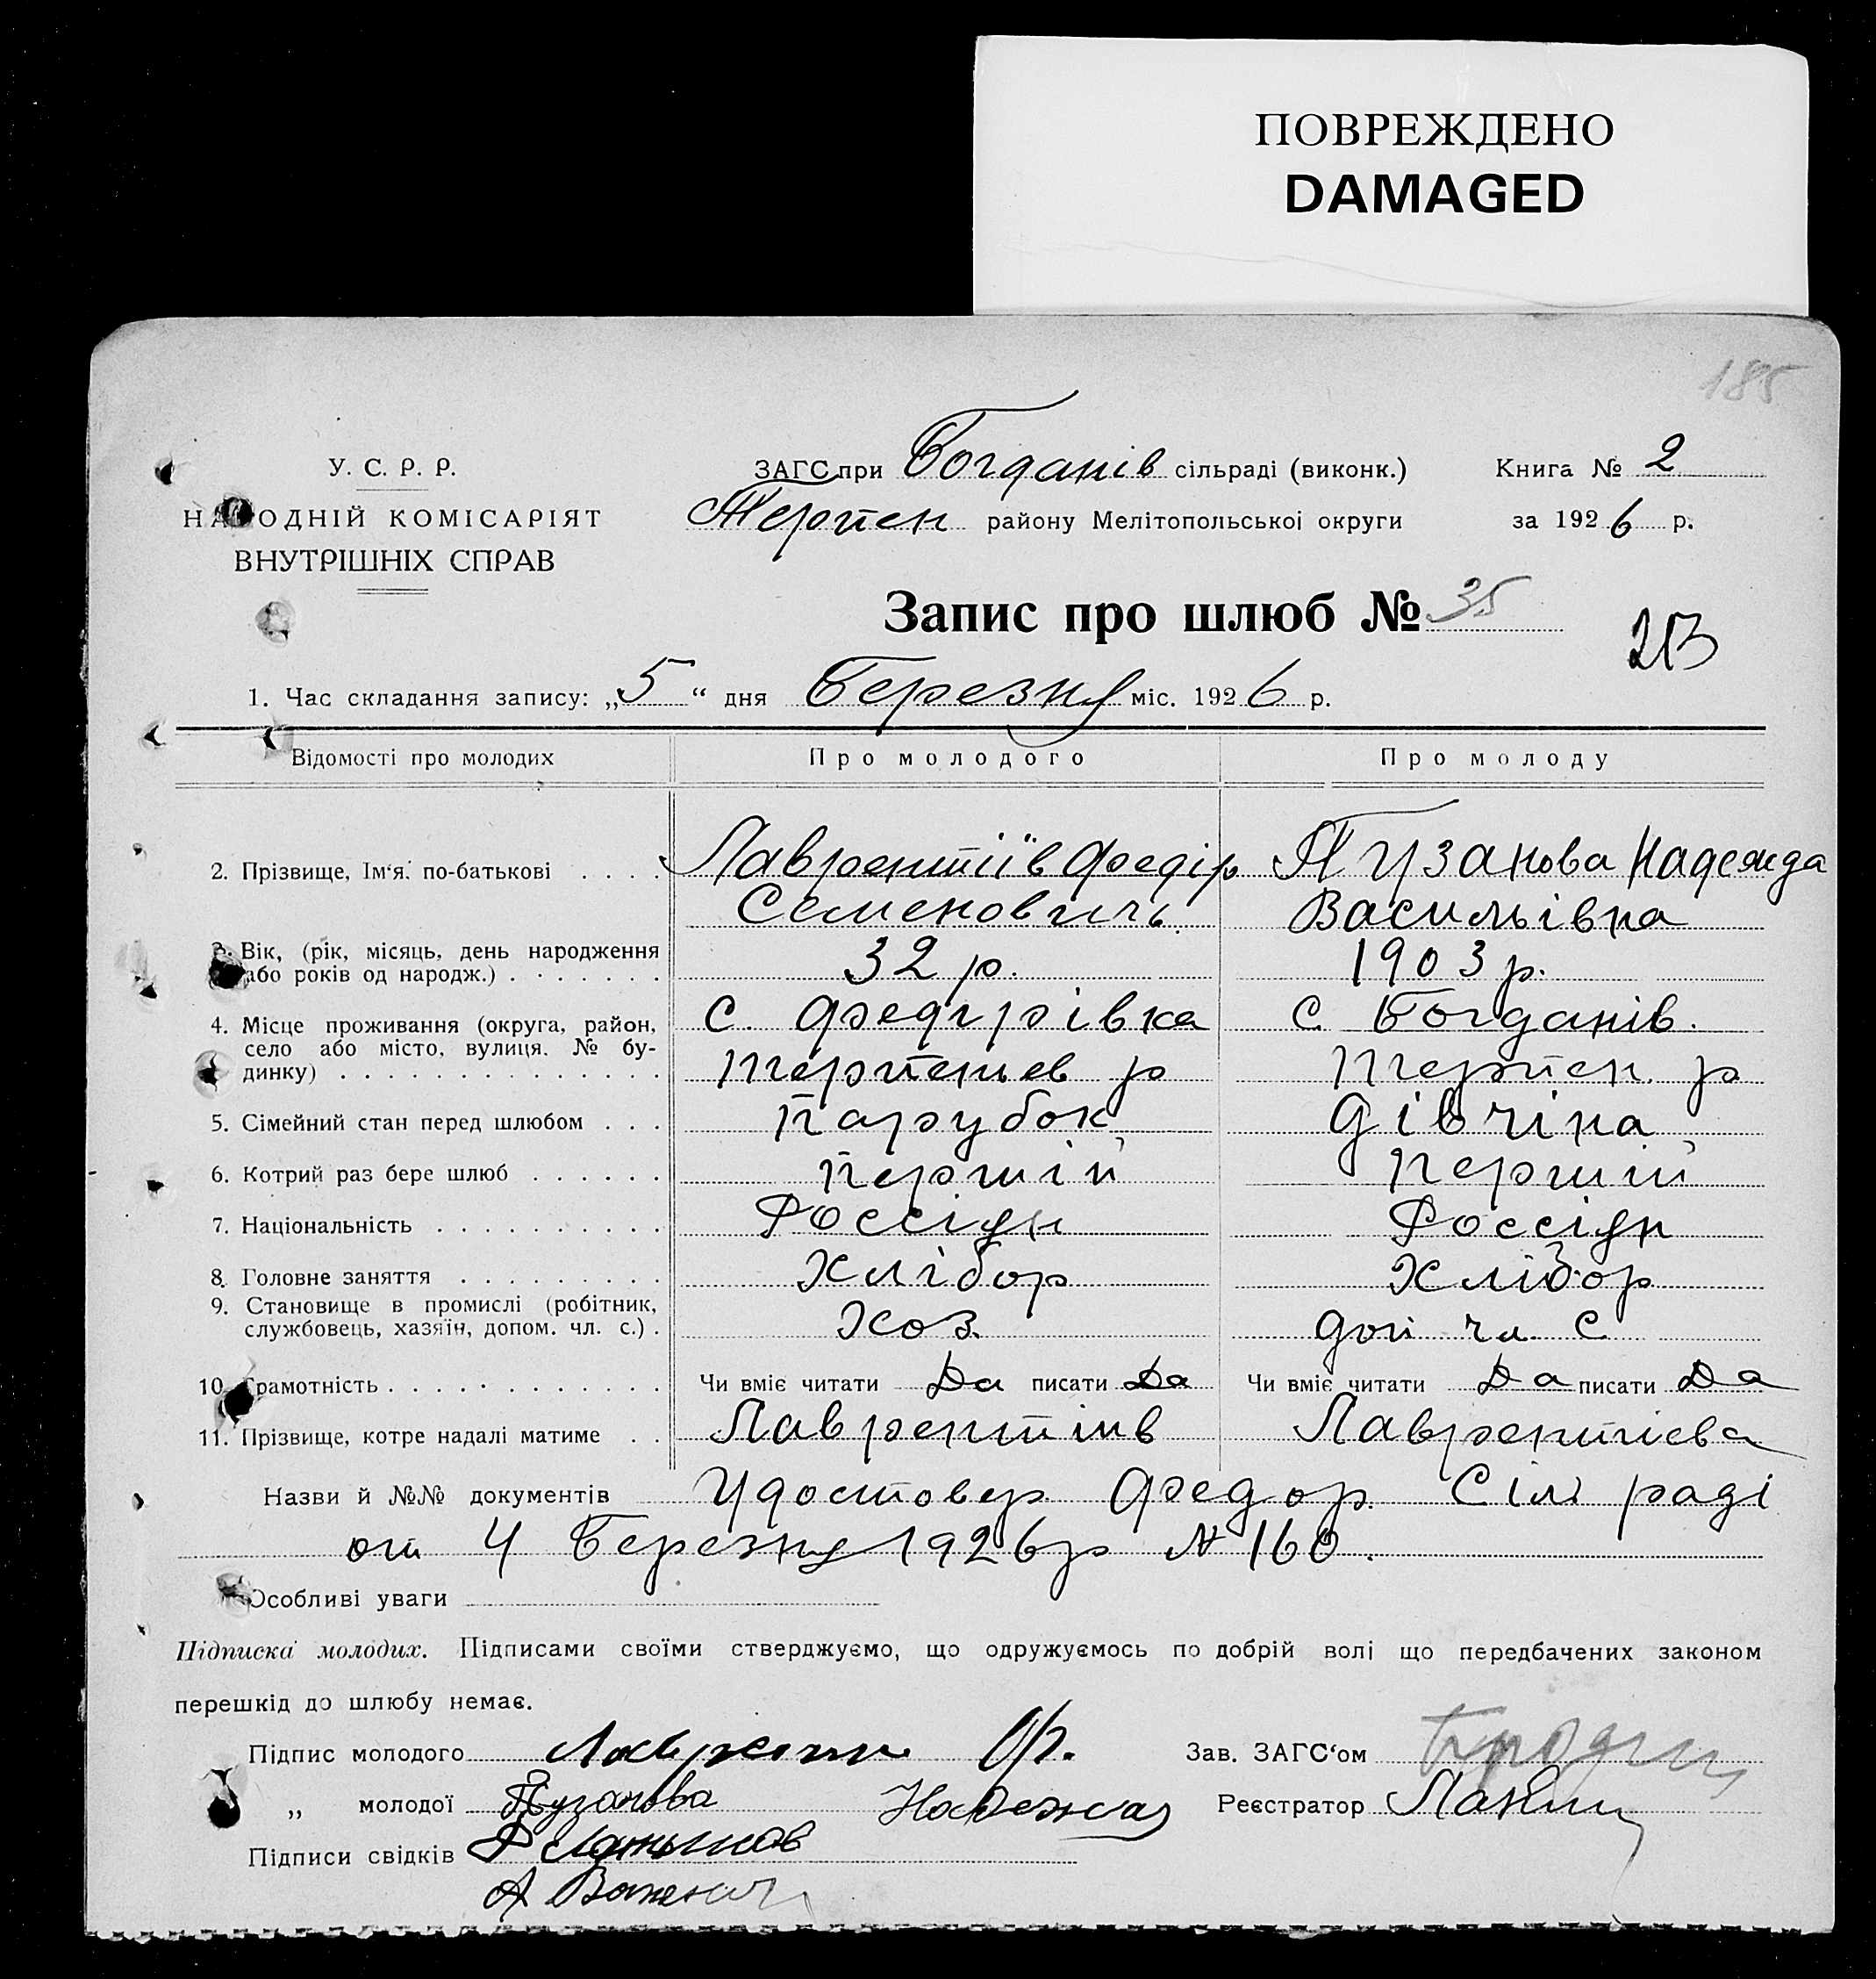 ПОВРЕЖДЕНО
DAMAGED
185
У. С. Р. Р.
НАРОДНІЙ КОМІСАРІЯТ
ВНУТРІШНІХ СПРАВ
ЗАГС при Богданів сільраді (виконк.)
Терпен району Мелітопольської округи
Книга № 2
за 1926 р.
Запис про шлюб № 35
213
1. Час складання запису: „5“ дня Березня міс. 1926 р.
Відомості про молодих Про молодого Про молоду
2. Прізвище, Ім‘я, по-батькові . . . . Лаврентіїв Федір Пузанова Надежда
Семеновичь Васильівна
3. Вік, (рік, місяць, день народження
або років од народж.) . . . . . . . 32 р. 1903 р.
4. Місце проживання (округа, район, с. Федурівка с. Богданів.
село або місто, вулиця. № бу-
динку) . . . . . . . . . . . . . . Терпеніев р Терпен. р
5. Сімейний стан перед шлюбом . . . Парубок дівчіна
6. Котрий раз бере шлюб . . . . . . Першій Першій
7. Національність . . . . . . . . . . Россіян Россіян
8. Головне заняття . . . . . . . . . Хлібор Хлібор
9. Становище в промислі (робітник,
службовець, хазяїн, допом. чл. с.) . Хоз. доп чл. С
10. Грамотність . . . . . . . . . . . . Чи вміє читати Да писати Да Чи вміє читати Да писати Да
11. Прізвище, котре надалі матиме . . Лаврентіїв Лаврентієва
Назви й №№ документів Удостовер. Федор. Сіл раді
от 4 Березня 1926 р № 160.
Особливі уваги
Підписка молодих. Підписами своїми стверджуємо, що одружуємось по добрій волі що передбачених законом
перешкід до шлюбу немає.
Підпис молодого Ф.
Зав. ЗАГС‘ом
„ молодої Пузанова Надежда
Реєстратор
Підписи свідків